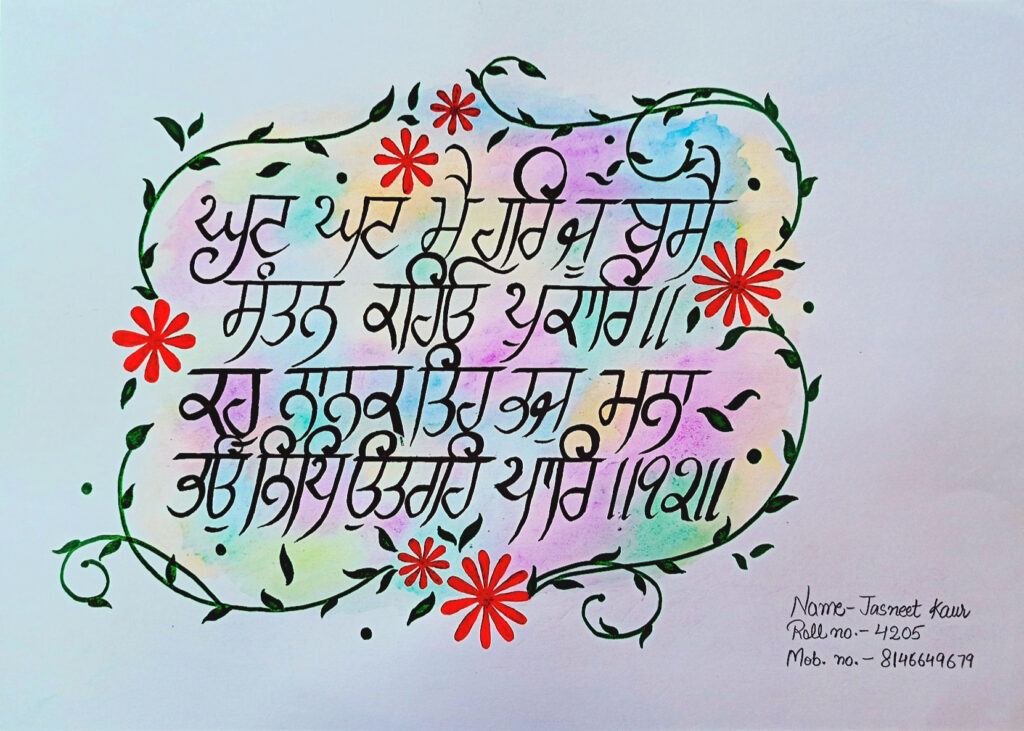 ਘਟ ਘਟ ਮੈ ਹਰਿ ਜੂ ਬਸੈ
ਸੰਤਨ ਕਹਿਓ ਪੁਕਾਰਿ॥
ਕਹੁ ਨਾਨਕ ਤਿਹ ਭਜੁ ਮਨਾ
ਭਉ ਨਿਧਿ ਉਤਰਹਿ ਪਾਰਿ॥੧੨॥
Name- Jasneet Kaur
Roll no.- 4205
Mob. no.- 8146649679